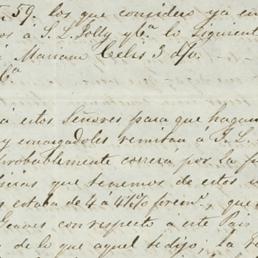 59, los que considero ya en
os á J. L. Jolly y Cª. lo siguiente
Mariano Celis 3 d/v.
Cª
a estos Señores para que hagan
y encargadoles remitan á J. L.
probablemente correra por La
icias que tenemos de estos
estaban de 4 á 4½%
con respecto á este Pais
de lo que aquel se dijo; La